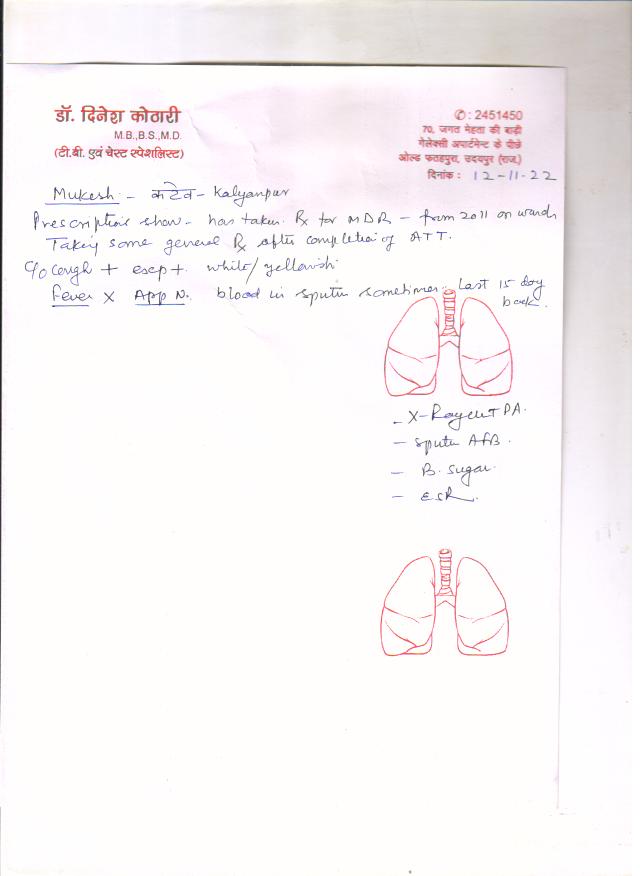 डॉ. दिनेश कोठारी
M.B.,B.S.,M.D.
(टी.बी. एवं चेस्ट स्पेशलिस्ट)
✆ : 2451450
70, जगत मेहता की बाड़ी
गेलेक्सी अपार्टमेन्ट के पीछे
ओल्ड फतहपुरा, उदयपुर (राज.)
दिनांक : 12-11-22
Mukesh - कटेव - Kalyanpur
Prescription show - has taken Rx for MDR - from 2011 onwards
Taking some general Rx after completion of ATT.
C/o Cough + exep +. white/yellowish
Fever x App N. blood in sputum sometimes. Last 15 day
back.
- X-Ray chest PA.
- Sputum AFB.
- B. sugar.
- ESR.